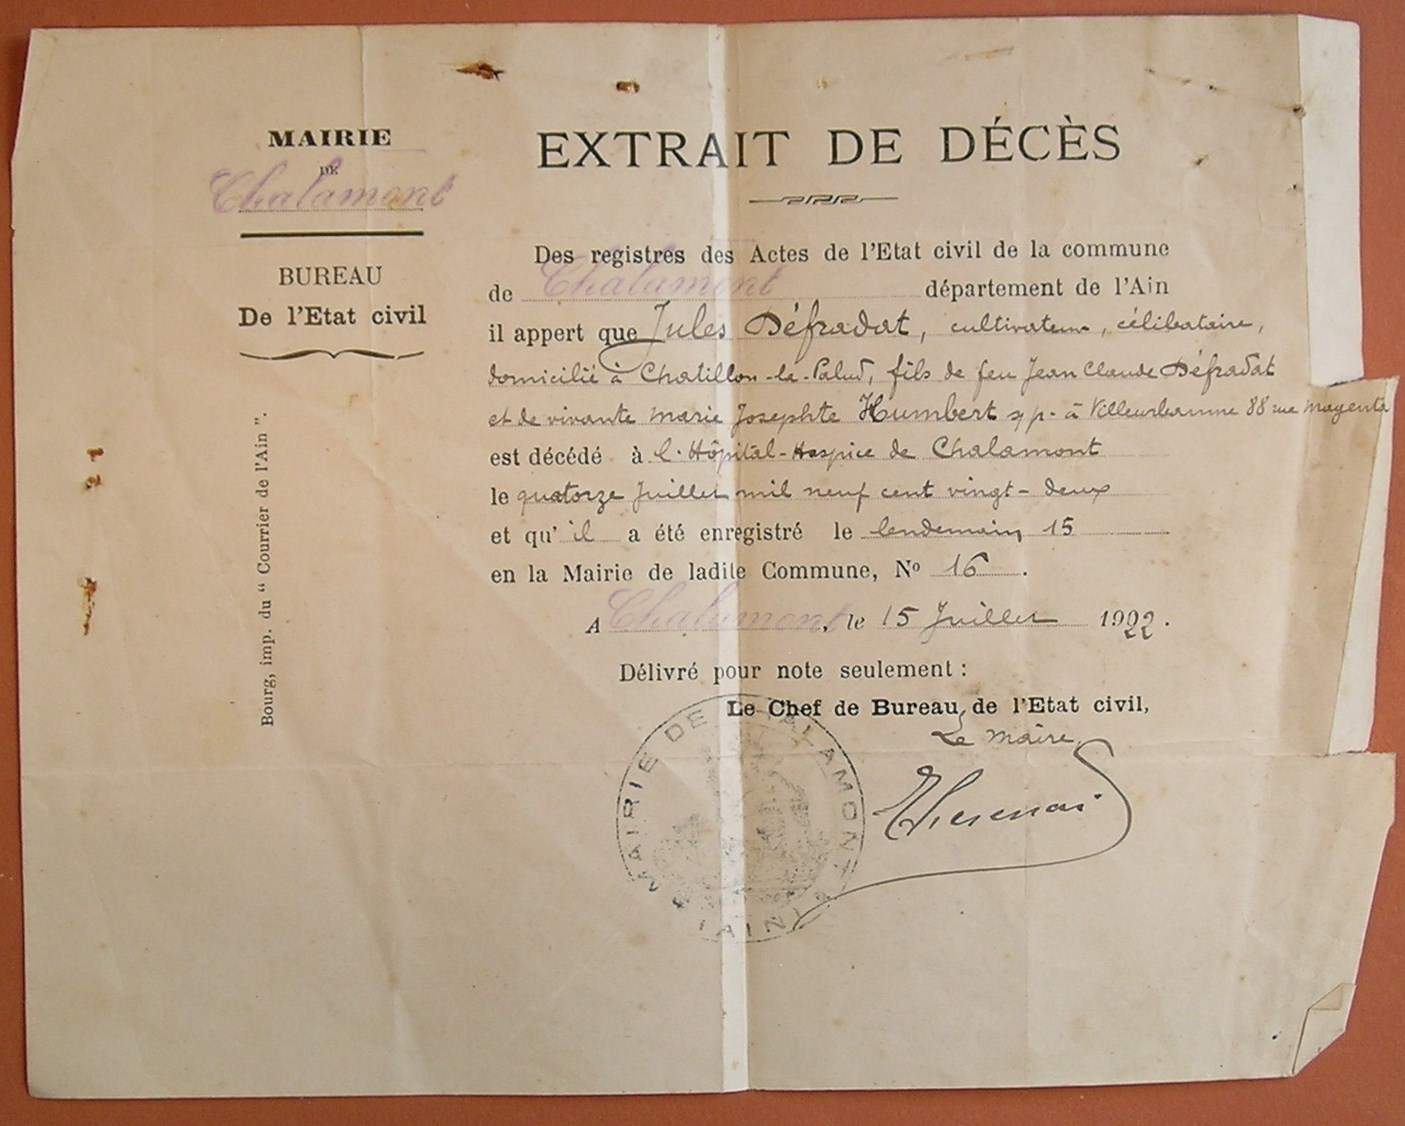 MAIRIE
DE
Chalamont
BUREAU
De l'Etat civil
Bourg, imp. du " Courrier de l'Ain ".
EXTRAIT DE DÉCÈS
Des registres des Actes de l'Etat civil de la commune
de Chalamont département de l'Ain
il appert que Jules Défradat, cultivateur, célibataire,
domicilié à Chatillon-la-Palud, fils de feu Jean Claude Défradat
et de vivante Marie Josephte Humbert à Villeurbanne 88 rue Magenta
est décédé à l'Hôpital-Hospice de Chalamont
le quatorze Juillet mil neuf cent vingt-deux
et qu'il a été enregistré le lendemain 15
en la Mairie de ladite Commune, No 16.
A Chalamont, le 15 Juillet 1922.
Délivré pour note seulement :
Le Chef de Bureau de l'Etat civil,
Le Maire,
MAIRIE DE CHALAMONT
(AIN)